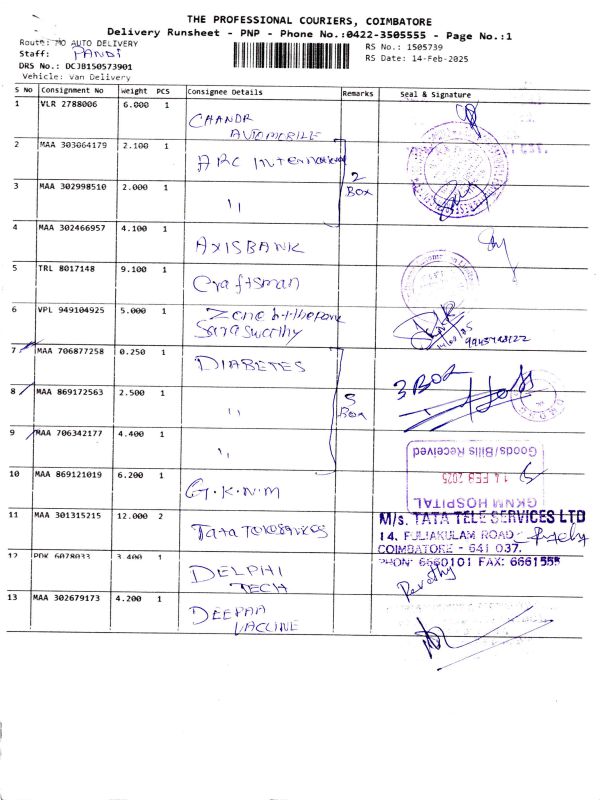 THE PROFESSIONAL COURIERS, COIMBATORE
Delivery Runsheet - PNP - Phone No.:0422-3505555 - Page No.:1
Route: MO AUTO DELIVERY
RS No.: 1505739
Staff: PANDI
RS Date: 14-Feb-2025
DRS No.: DCJB150573901
Vehicle: Van Delivery
S No Consignment No Weight PCS Consignee Details Remarks Seal & Signature
1 VLR 2788006 6.000 1 CHANDR
AUTOMOBILE
2 MAA 303064179 2.100 1 ARC International
2
Box
3 MAA 302998510 2.000 1 "
4 MAA 302466957 4.100 1 AXISBANK
5 TRL 8017148 9.100 1 Craftsman
6 VPL 949104925 5.000 1 Zone
7 MAA 706877258 0.250 1 DIABETES
8 MAA 869172563 2.500 1 " 3 Box
Box
9 MAA 706342177 4.400 1 "
Goods/Bills Received
14 FEB 2025
GKNM HOSPITAL
10 MAA 869121019 6.200 1 G.K.N.M
11 MAA 301315215 12.000 2 Tata
M/s. TATA TELE SERVICES LTD
14. PULIAKULAM ROAD
COIMBATORE - 641 037.
PHON: 6660101 FAX: 6661555
12 PDK 6078033 3.400 1 DELPHI
TECH
Revathy
13 MAA 302679173 4.200 1 DEEPAA
VACCINE